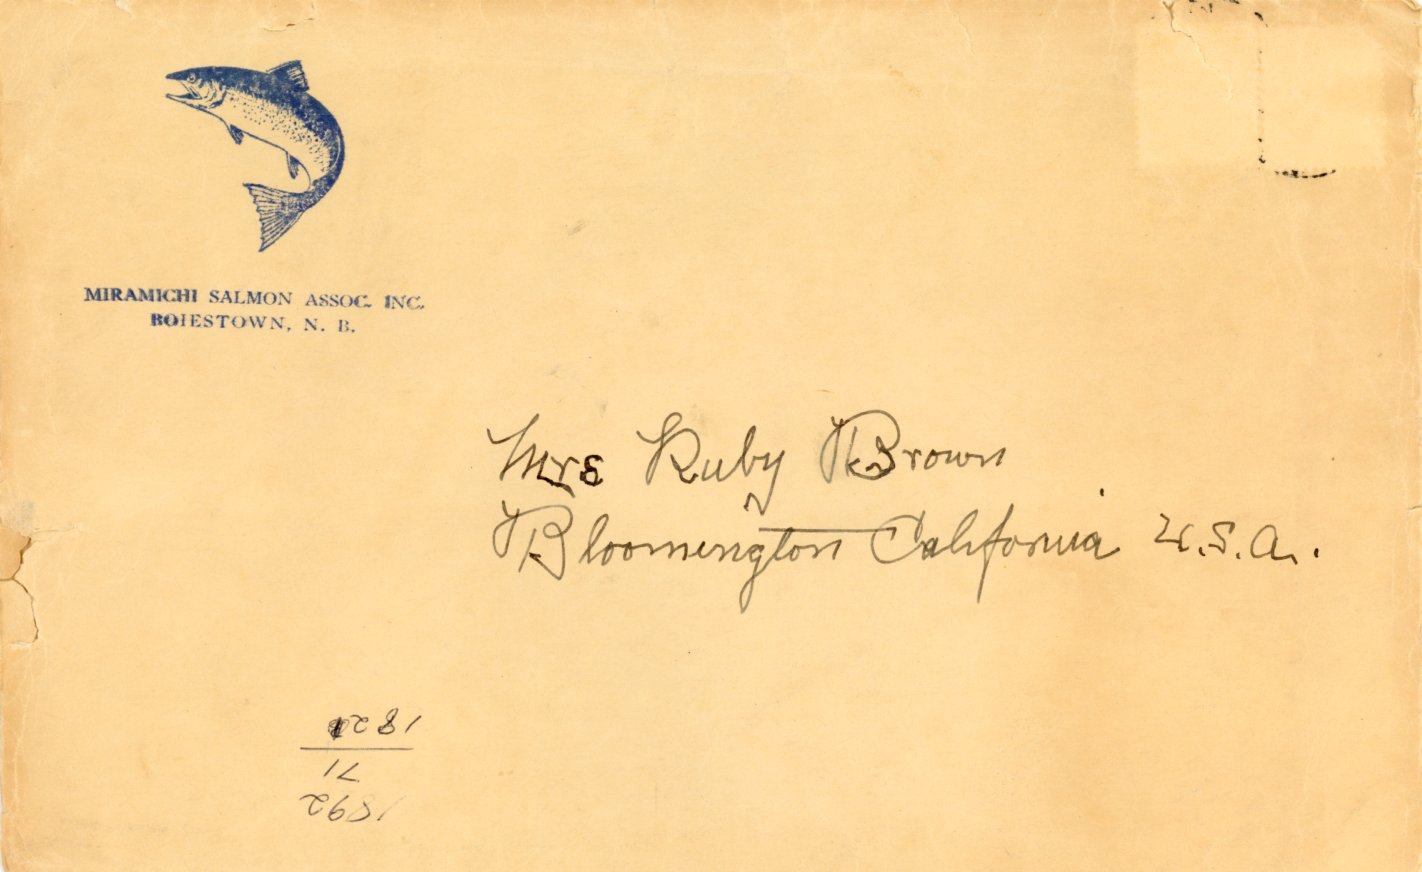 MIRAMICHI SALMON ASSOC. INC.
BOIESTOWN, N. B.
Mrs Ruby Brown
Bloomington California U.S.A.
1892
71
1821